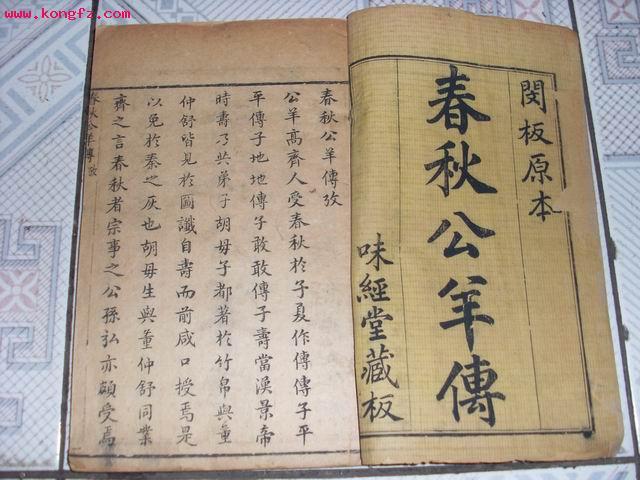 www.kongfz.com
閔板原本
春秋公羊傳
味經堂藏板
春秋公羊傳攷
公羊髙齊人受春秋於子夏作傳傳子平
平傳子地地傳子敢敢傳子壽當漢景帝
時壽乃共弟子胡毋子都著於竹帛與董
仲舒皆見於圖讖自壽而前咸口授焉是
以免於秦之灰也胡毋生與董仲舒同業
齊之言春秋者宗事之公孫弘亦頗受焉
春秋公羊傳攷